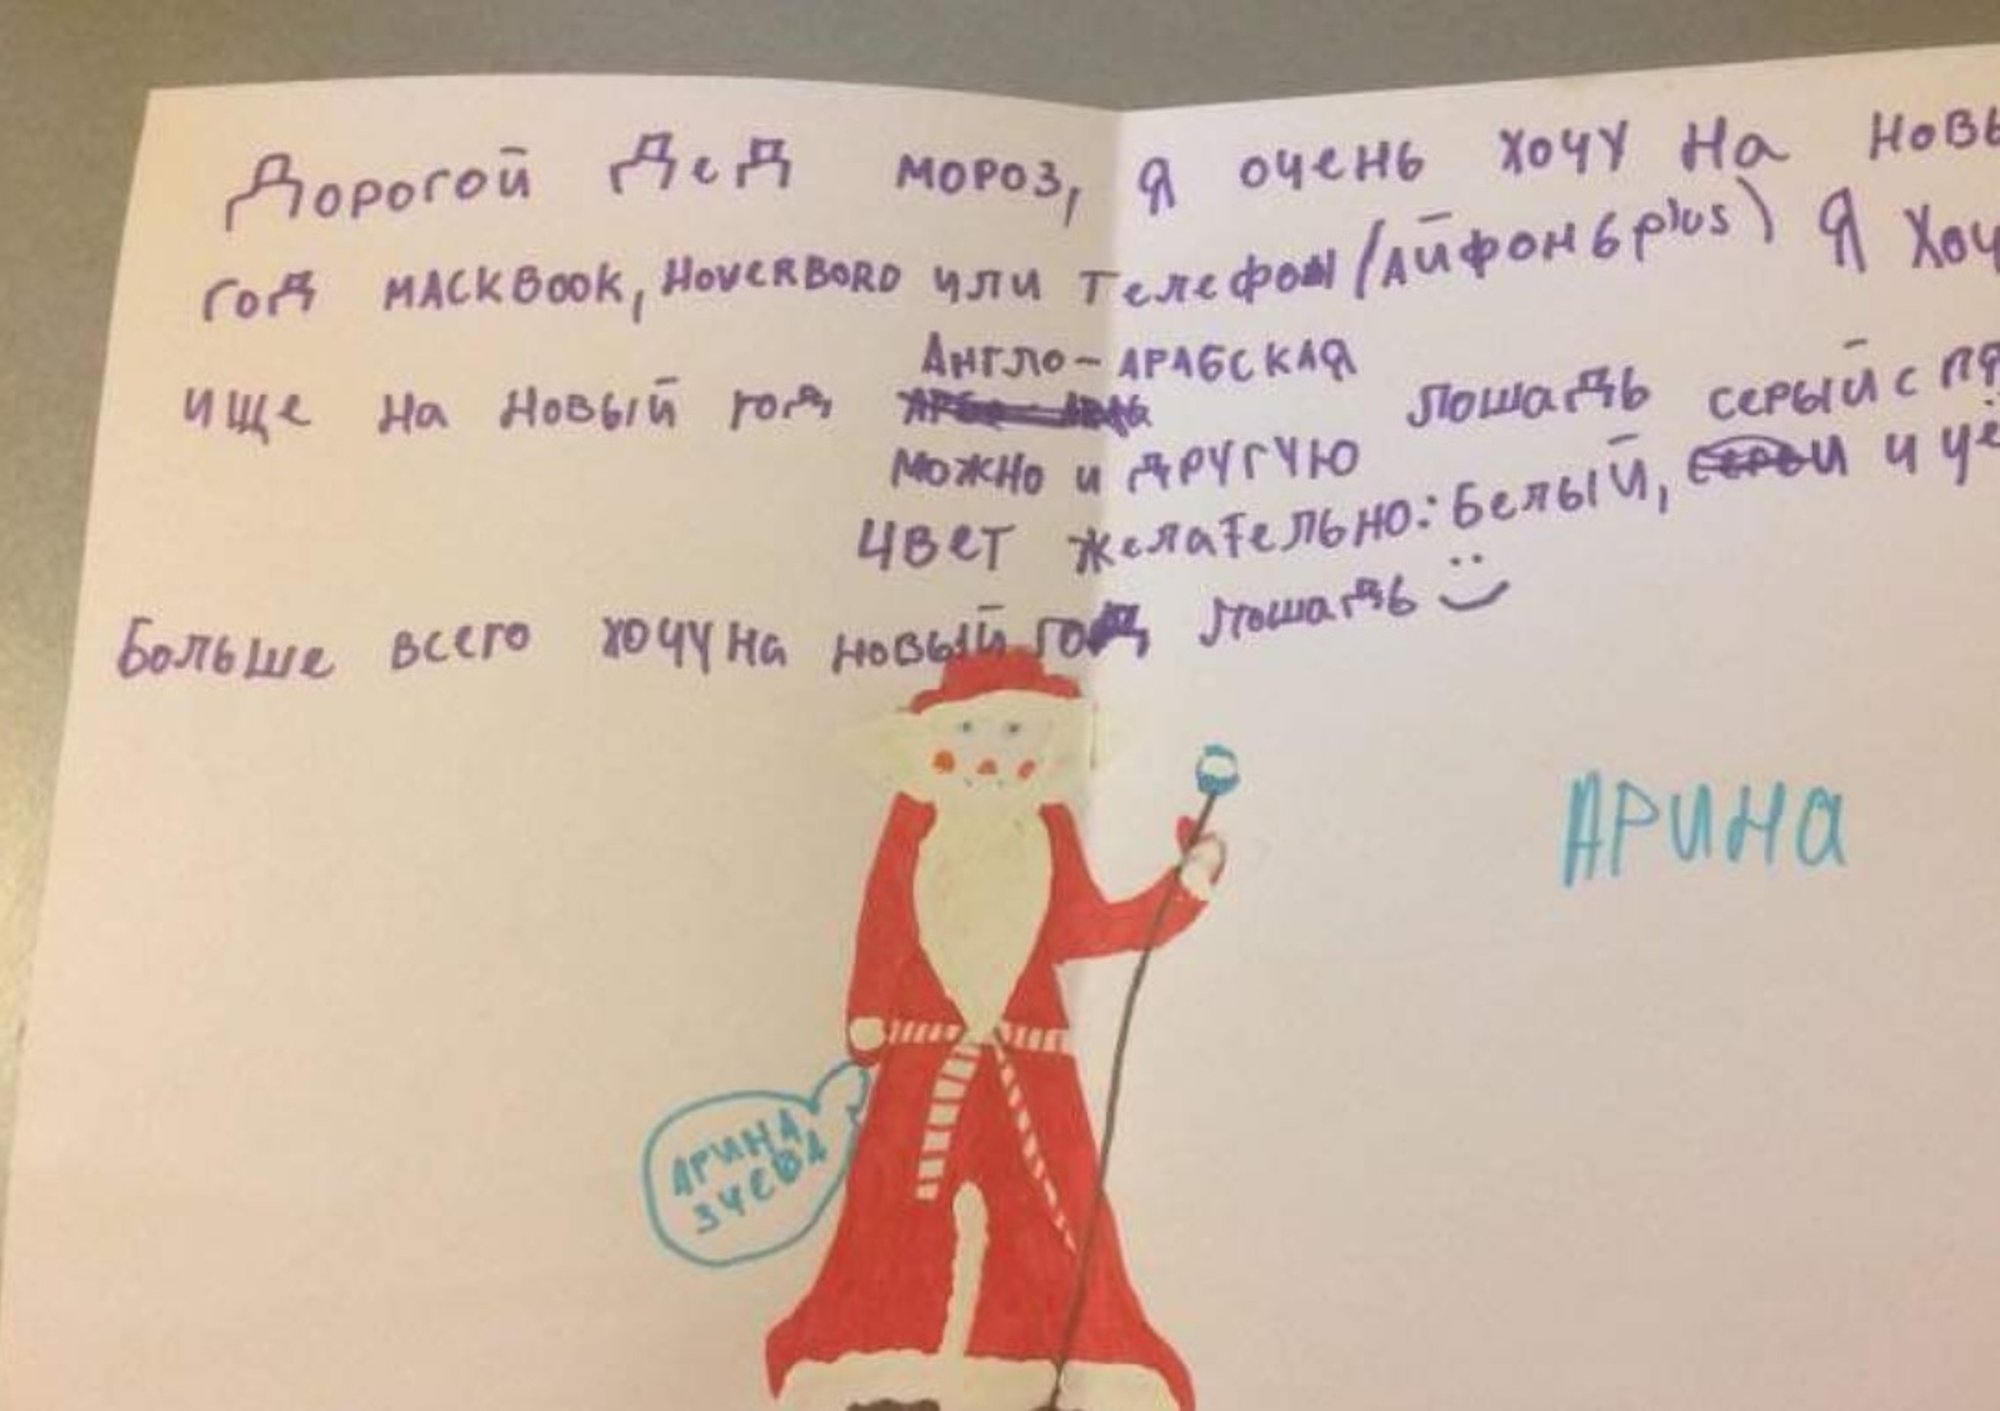 Дорогой Дед мороз, я очень хочу на новы
год MACKBOOK, HOVERBORD или телефон (Айфон 6 plus) Я хоч
ище на новый год Англо-Арабская лошадь серый с пя
можно и другую
цвет желательно: Белый, и чё
Больше всего хочу на новый год лошадь
АРИНА
АРИНА
ЗУЕВА